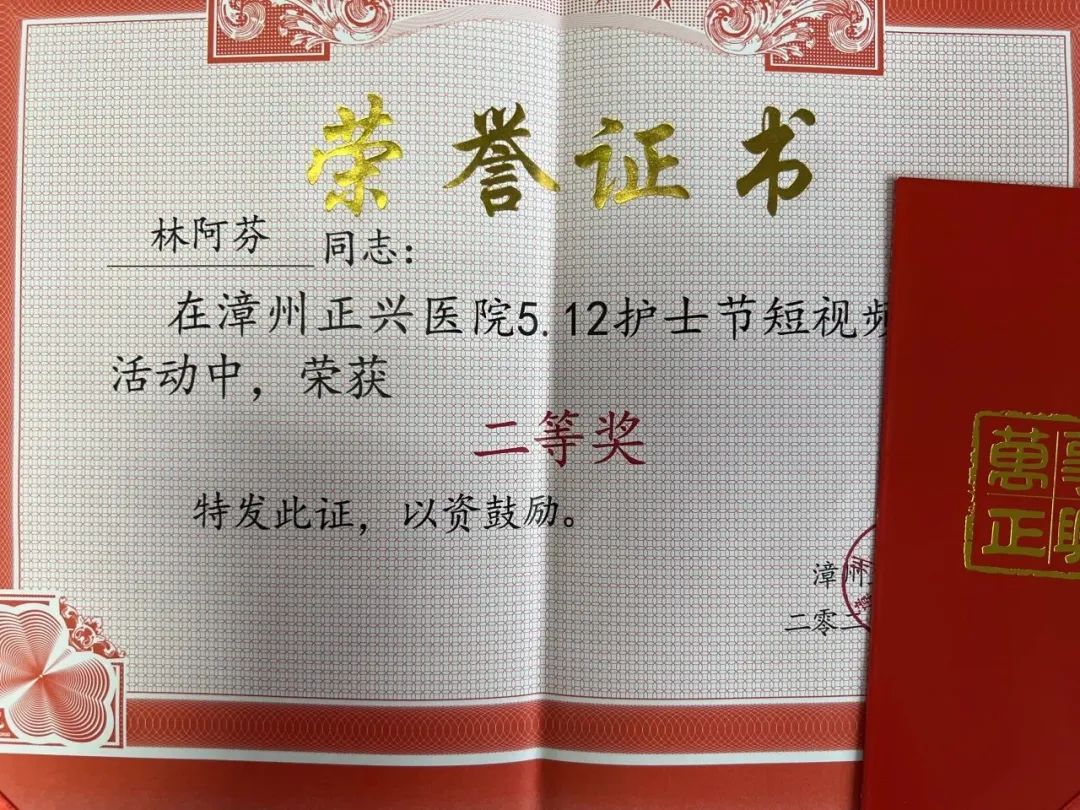 荣誉证书
林阿芬 同志：
在漳州正兴医院5.12护士节短视频
活动中，荣获
二等奖
特发此证，以资鼓励。
漳州
二零二
萬事
正